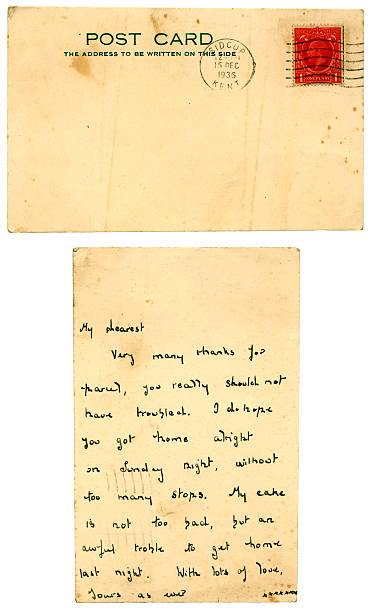 POST CARD
THE ADDRESS TO BE WRITTEN ON THIS SIDE
SIDCUP
15 DEC
1936
KENT
My dearest
Very many thanks for
parcel, you really should not
have troubled. I do hope
you got home alright
on Sunday night, without
too many stops. My cake
is not too bad, but an
awful to get home
last night. With lots of love,
Yours as
xxxxxxx